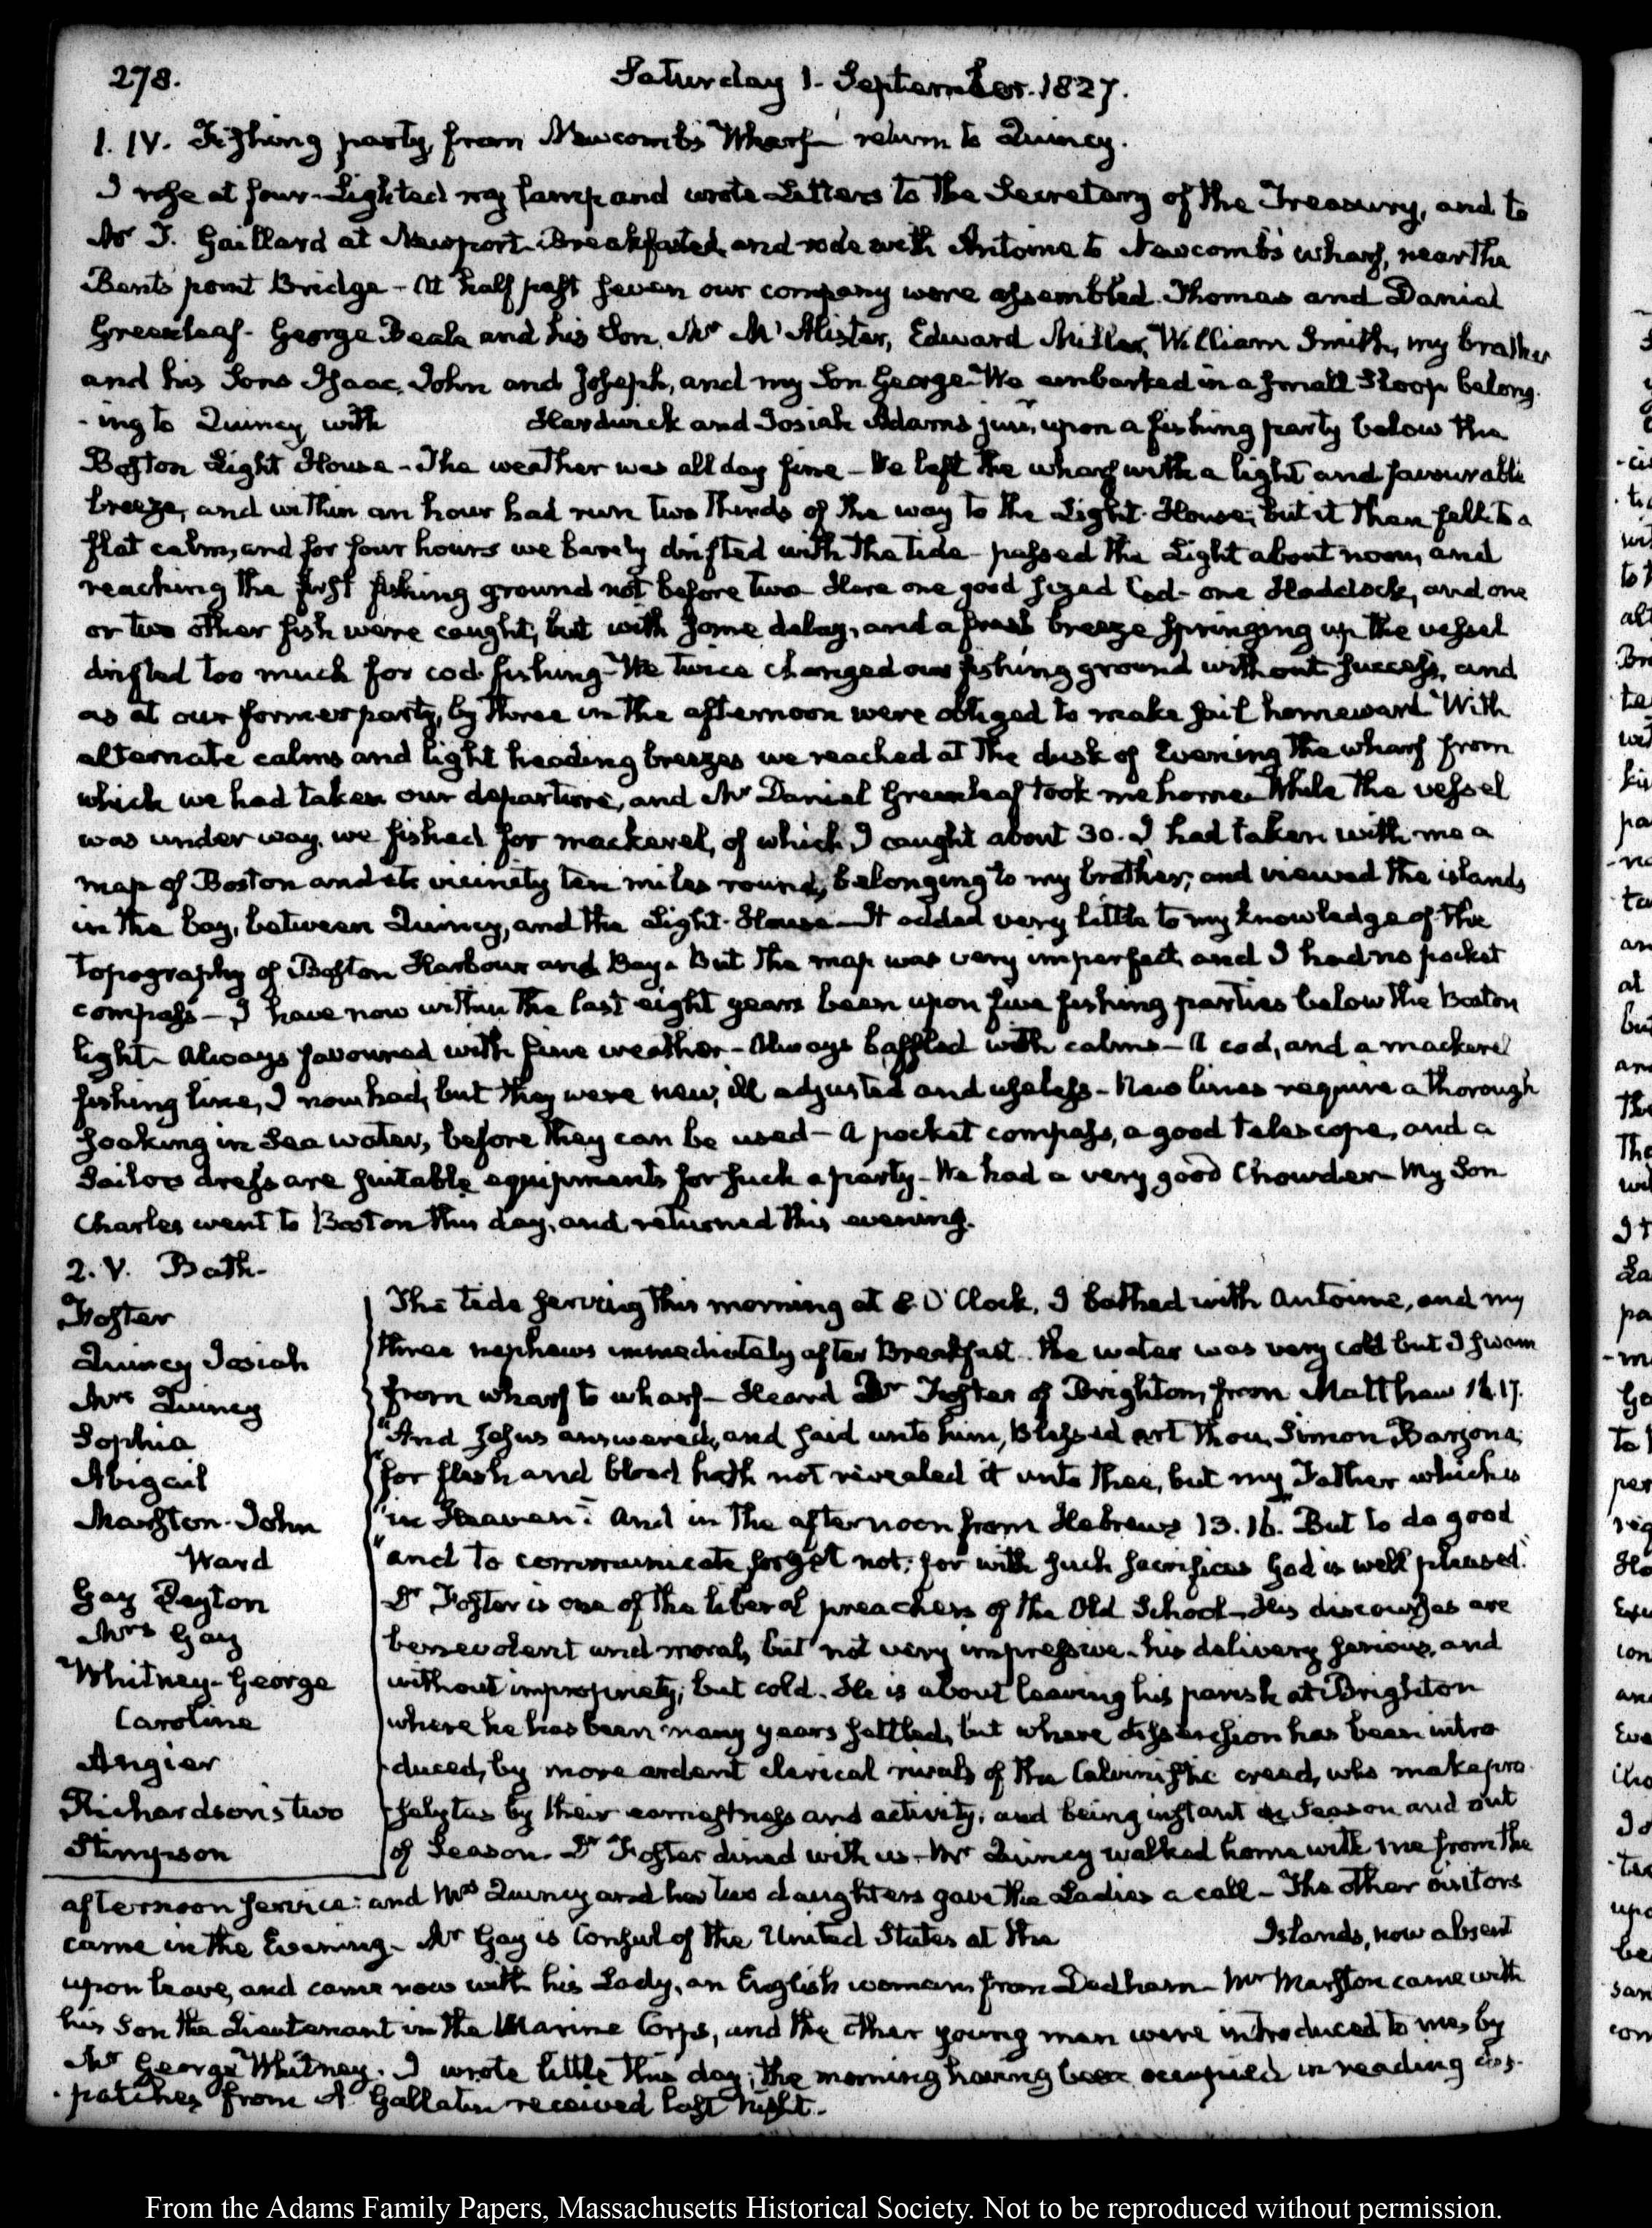 278.
Saturday 1. September. 1827.
1. IV. Fishing party, from Newcomb's Wharf return to Quincy.
I rose at four. Lighted my lamp and wrote Letters to the Secretary of the Treasury, and to
Mr J. Gaillard at Newport. Breakfasted and rode with Antoine to Newcomb's wharf, near the
Bents point Bridge - At half past seven our company were assembled. Thomas and Daniel
Greenleaf. George Beale and his Son, Mr McAlister, Edward Miller, William Smith, my brother
and his Sons Isaac, John and Joseph, and my Son George. We embarked in a small Sloop belong-
-ing to Quincy, with Hardwick and Josiah Adams junr, upon a fishing party below the
Boston Light House - The weather was all day fine - We left the wharf with a light and favourable
breeze, and within an hour had run two thirds of the way to the Light-House; but it then fell to a
flat calm, and for four hours we barely drifted with the tide - passed the Light about noon, and
reaching the first fishing ground not before two. Here one good sized Cod - one Haddock, and one
or two other fish were caught, but with some delay, and a fresh breeze springing up the vessel
drifted too much for cod fishing - We twice changed our fishing ground without success, and
as at our former party, by three in the afternoon were obliged to make sail homeward. With
alternate calms and light heading breezes we reached at the dusk of Evening the wharf from
which we had taken our departure, and Mr Daniel Greenleaf took me home. While the vessel
was under way, we fished for mackerel, of which I caught about 30. I had taken with me a
map of Boston and its vicinity ten miles round, belonging to my brother; and viewed the islands
in the bay, between Quincy, and the Light-House - It added very little to my knowledge of the
topography of Boston Harbour and Bay. But the map was very imperfect, and I had no pocket
compass - I have now within the last eight years been upon five fishing parties below the Boston
light - Always favoured with fine weather - Always baffled with calms - A cod, and a mackerel
fishing line, I now had, but they were new, ill adjusted and useless - New lines require a thorough
soaking in Sea water, before they can be used - A pocket compass, a good telescope, and a
Sailors dress are suitable equipments for such a party - We had a very good Chowder - My Son
Charles went to Boston this day, and returned this evening.
2. V. Bath.
Foster
Quincy Josiah
Mrs Quincy
Sophia
Abigail
Marston. John
Ward
Gay Payton
Mrs Gay
Whitney. George
Caroline
Angier
Richardsons two
Stimpson
The tide serving this morning at 8 O'Clock, I bathed with Antoine, and my
three nephews immediately after Breakfast. The water was very cold but I swam
from wharf to wharf - Heard Dr Foster of Brighton, from Matthew 16.17.
"And Jesus answered, and said unto him, Blessed art thou, Simon Barjona,
"for flesh and blood hath not revealed it unto thee, but my Father which is
"in Heaven". And in the afternoon from Hebrews 13.16. "But to do good
"and to communicate forget not; for with such sacrifices God is well pleased."
Dr Foster is one of the liberal preachers of the Old School - His discourses are
benevolent and moral, but not very impressive - his delivery serious, and
without impropriety; but cold. He is about leaving his parish at Brighton
where he has been many years settled, but where dissension has been intro
duced, by more ardent clerical rivals of the Calvinistic creed, who make pro-
-selytes by their earnestness and activity; and being instant in Season and out
of Season. Dr Foster dined with us - Mr Quincy walked home with me from the
afternoon service: and Mrs Quincy and her two daughters gave the Ladies a call - The other visitors
came in the Evening. Mr Gay is Consul of the United States at the Islands, now absent
upon leave, and came now with his Lady, an English woman, from Dedham - Mr Marston came with
his Son the Lieutenant in the Marine Corps, and the other young men were introduced to me, by
Mr George Whitney. I wrote little this day; the morning having been occupied in reading dis-
-patches from A. Gallatin received last Night.
From the Adams Family Papers, Massachusetts Historical Society. Not to be reproduced without permission.